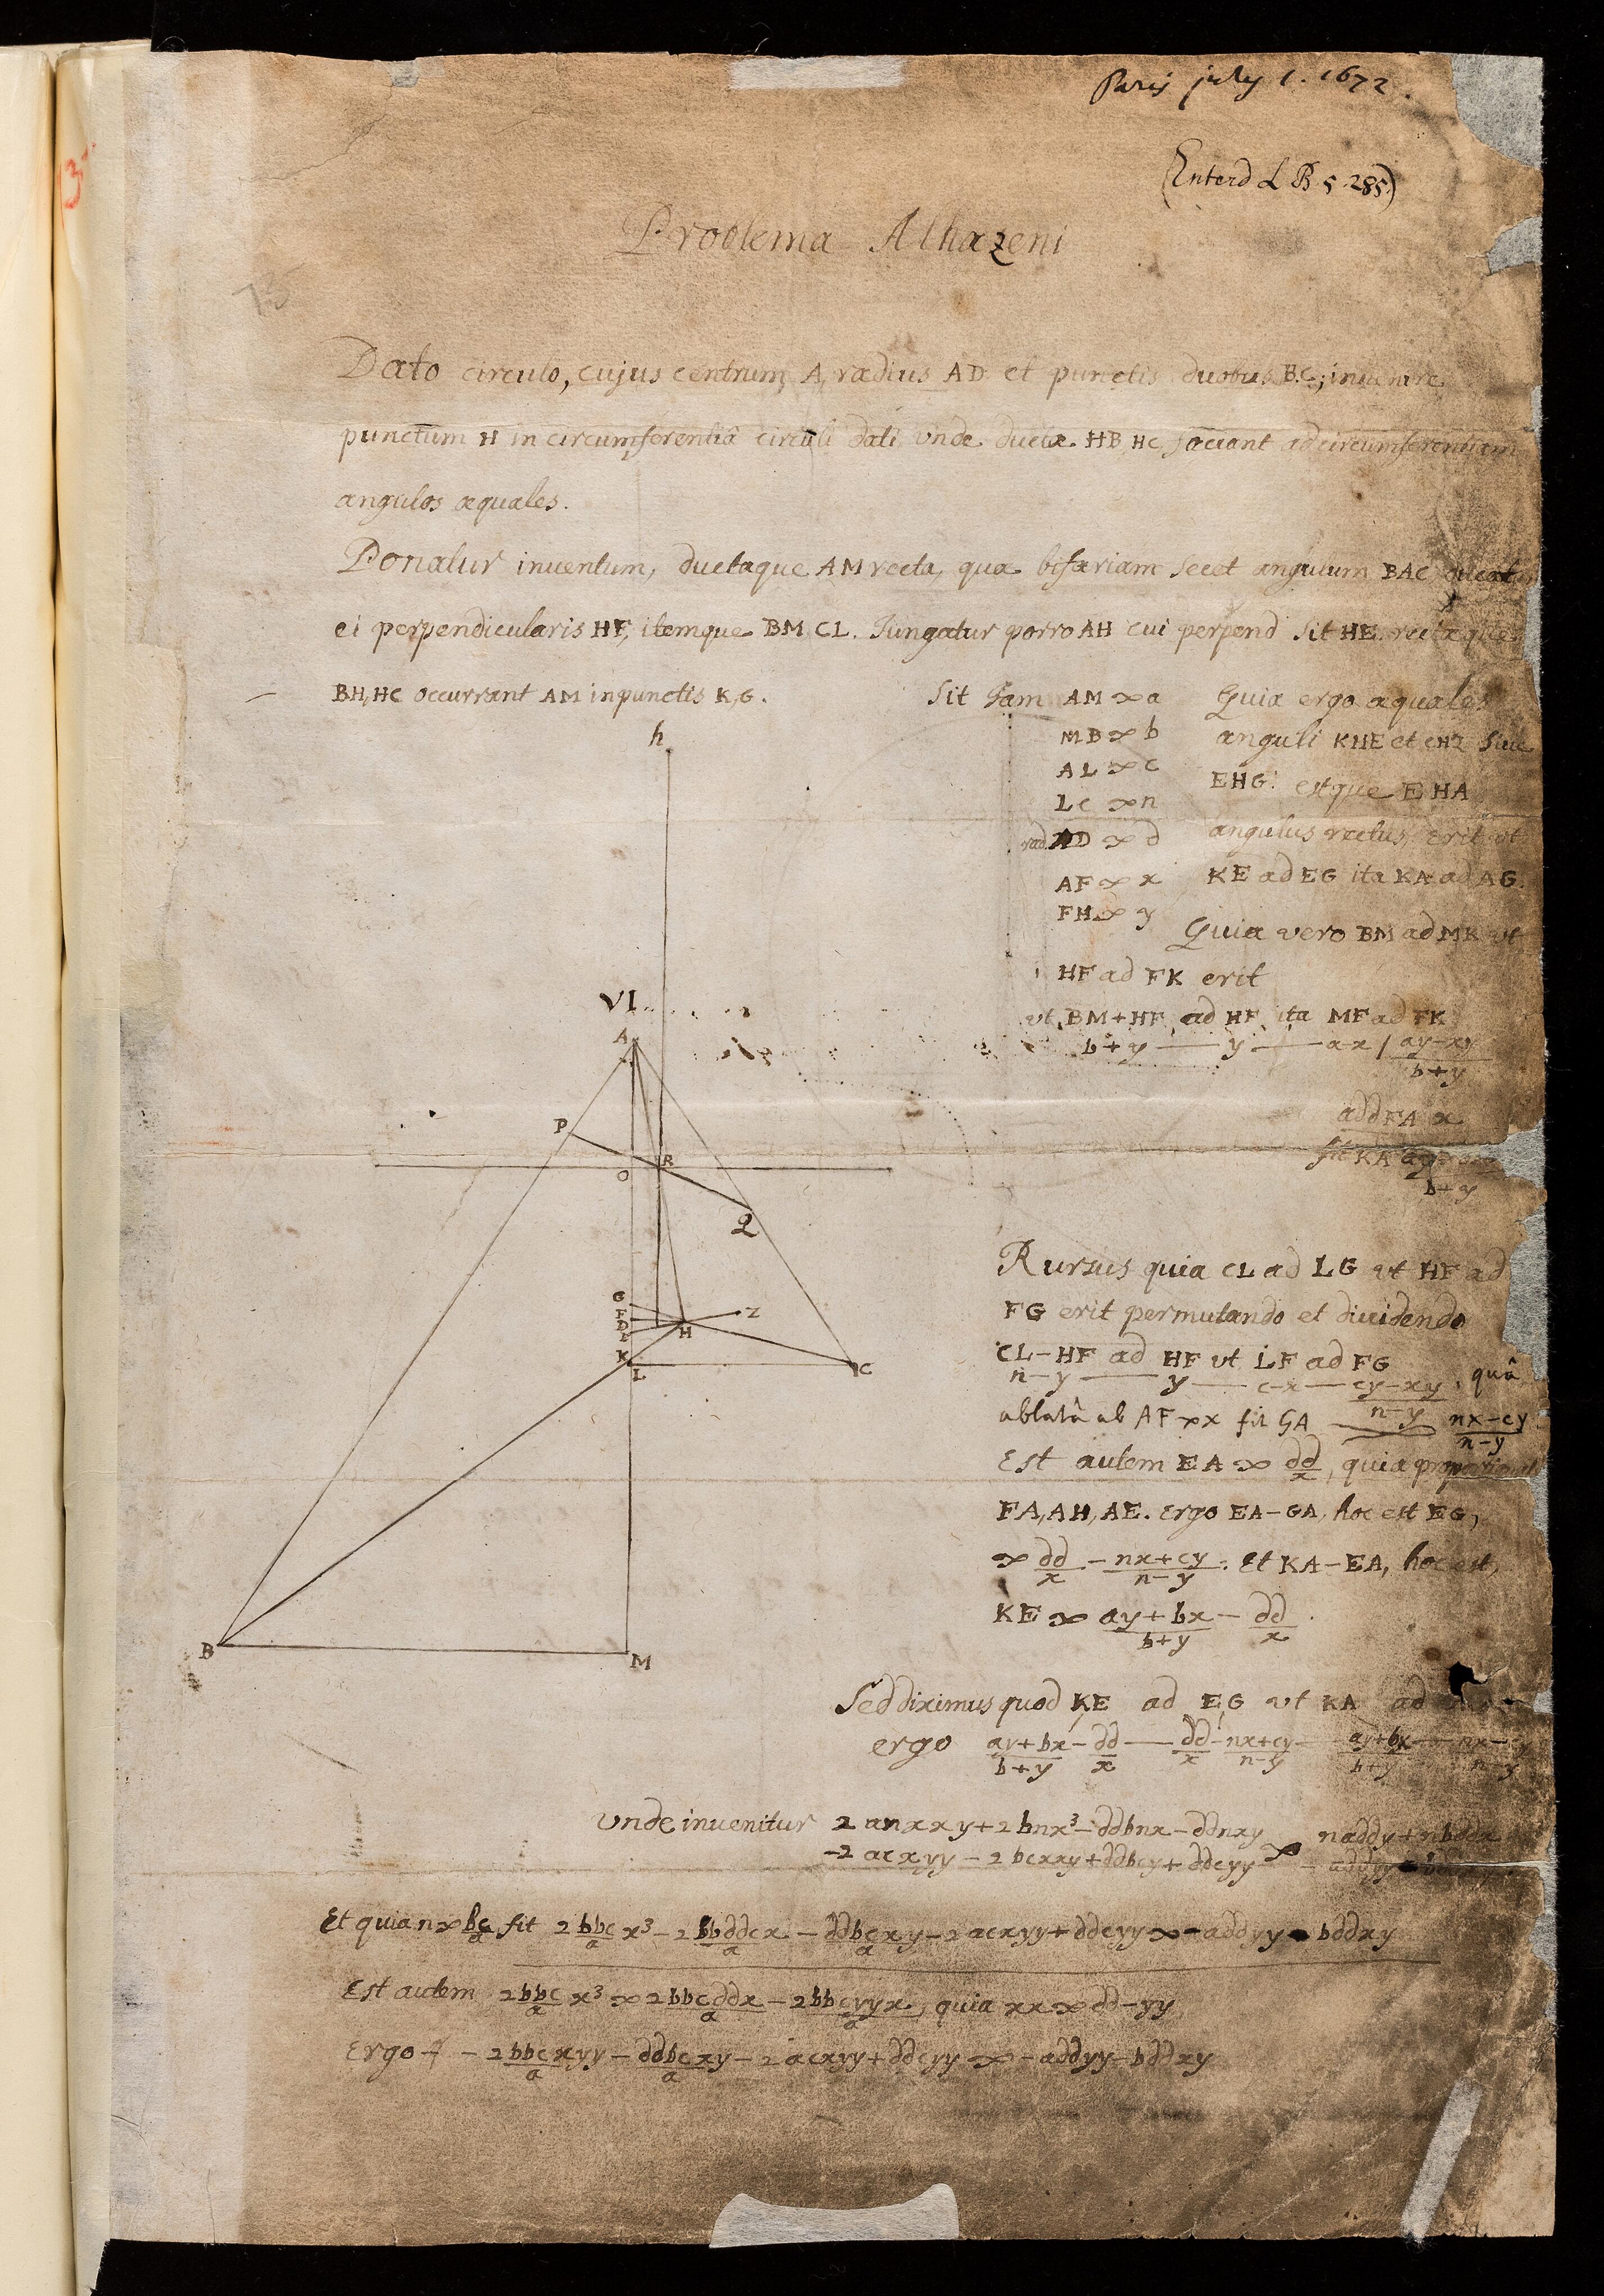 Paris july 1. 1672.
(Enterd L B 5. 285)
Problema Alhazeni
Dato circulo, cujus centrum A, radius AD et punctis duobus B.C; invenire
punctum H in circumferentiâ circuli dati unde ductæ HB, HC, faciant ad circumferentiam
angulos æquales.
Ponatur inventum, ductaque AM recta, quæ bifariam secet angulum BAC,
ei perpendicularis HF, itemque BM, CL. Jungatur porro AH cui perpend sit HE. rectæque
BH, HC occurrant AM in punctis K, G.
Sit jam AM ∝ a
MB ∝ b
AL ∝ c
LC ∝ n
rad. AD ∝ d
AF ∝ x
FH ∝ y
Quia ergo æquales
anguli KHE et CHZ sive
EHG: estque EHA
angulus rectus, erit ut
KE ad EG ita KA ad AG.
Quia vero BM ad MK ut
HF ad FK erit
ut BM+HF ad HF ita MF ad FK
b+y — y — a-x / ay-xy/b+y
add FA x
fit KA
b+y
h
VI.
A
P
R
O
Q
G
F
D
E
Z
H
K
L
C
B
M
Rursus quia CL ad LG ut HF ad
FG erit permutando et dividendo
CL-HF ad HF ut LF ad FG
n-y — y — c-x — cy-xy/n-y, quâ
ablatâ ab AF ∝ x fit GA nx-cy/n-y
Est autem EA ∝ dd/x, quia
FA, AH, AE. ergo EA-GA, hoc est EG,
∝ dd/x - nx+cy/n-y. Et KA-EA, hoc est,
KE ∝ ay+bx/b+y - dd/x.
Sed diximus quod KE ad EG ut KA ad
ergo ay+bx/b+y - dd/x — dd/x - nx+cy/n-y — ay+bx/b+y — nx-cy/n-y
Unde invenitur 2anxxy+2bnx³-ddbnx-ddnxy ∝ naddy+nbddx
-2acxyy-2bcxxy+ddbcy+ddcyy - addyy
Et quia n ∝ bc/a fit 2bbc/a x³ - 2bbddcx/a - ddbcxy/a - 2acxyy+ddcyy ∝ -addyy - bddxy
Est autem 2bbc/a x³ ∝ 2bbcddx/a - 2bbcyyx/a, quia xx ∝ dd-yy
Ergo - 2bbcxyy/a - ddbcxy/a - 2acxyy+ddcyy ∝ -addyy-bddxy